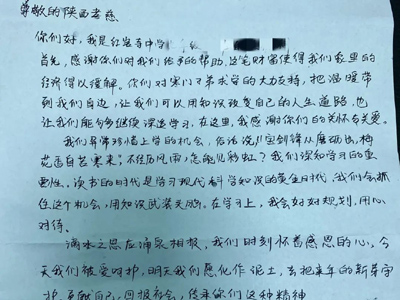 尊敬的陕西老慈
你们好,我是红岩寺中学
首先,感谢你们对我们给予的帮助,这笔财富使得我们家里的
经济得以缓解。你们对寒门子弟求学的大力支持,把温暖带
到我们身边,让我们可以用知识改变自己的人生道路,也
让我们能够继续深造学习,在这里,我感谢你们的关怀与关爱。
我们异常珍惜上学的机会,俗话说"宝剑锋从磨砺出,梅
花香自苦寒来",不经历风雨,怎能见彩虹?我们深知学习的重
要性。读书的时代是学习现代科学知识的黄金时代,我们会抓
住这个机会,用知识武装头脑。在学习上,我会好好规划,用心
对待。
滴水之恩应涌泉相报,我们时刻怀着感恩的心,今
天我们被爱呵护,明天我们愿化作泥土,去把来年的新芽守
护,贡献自己,回报社会,传承你们这种精神